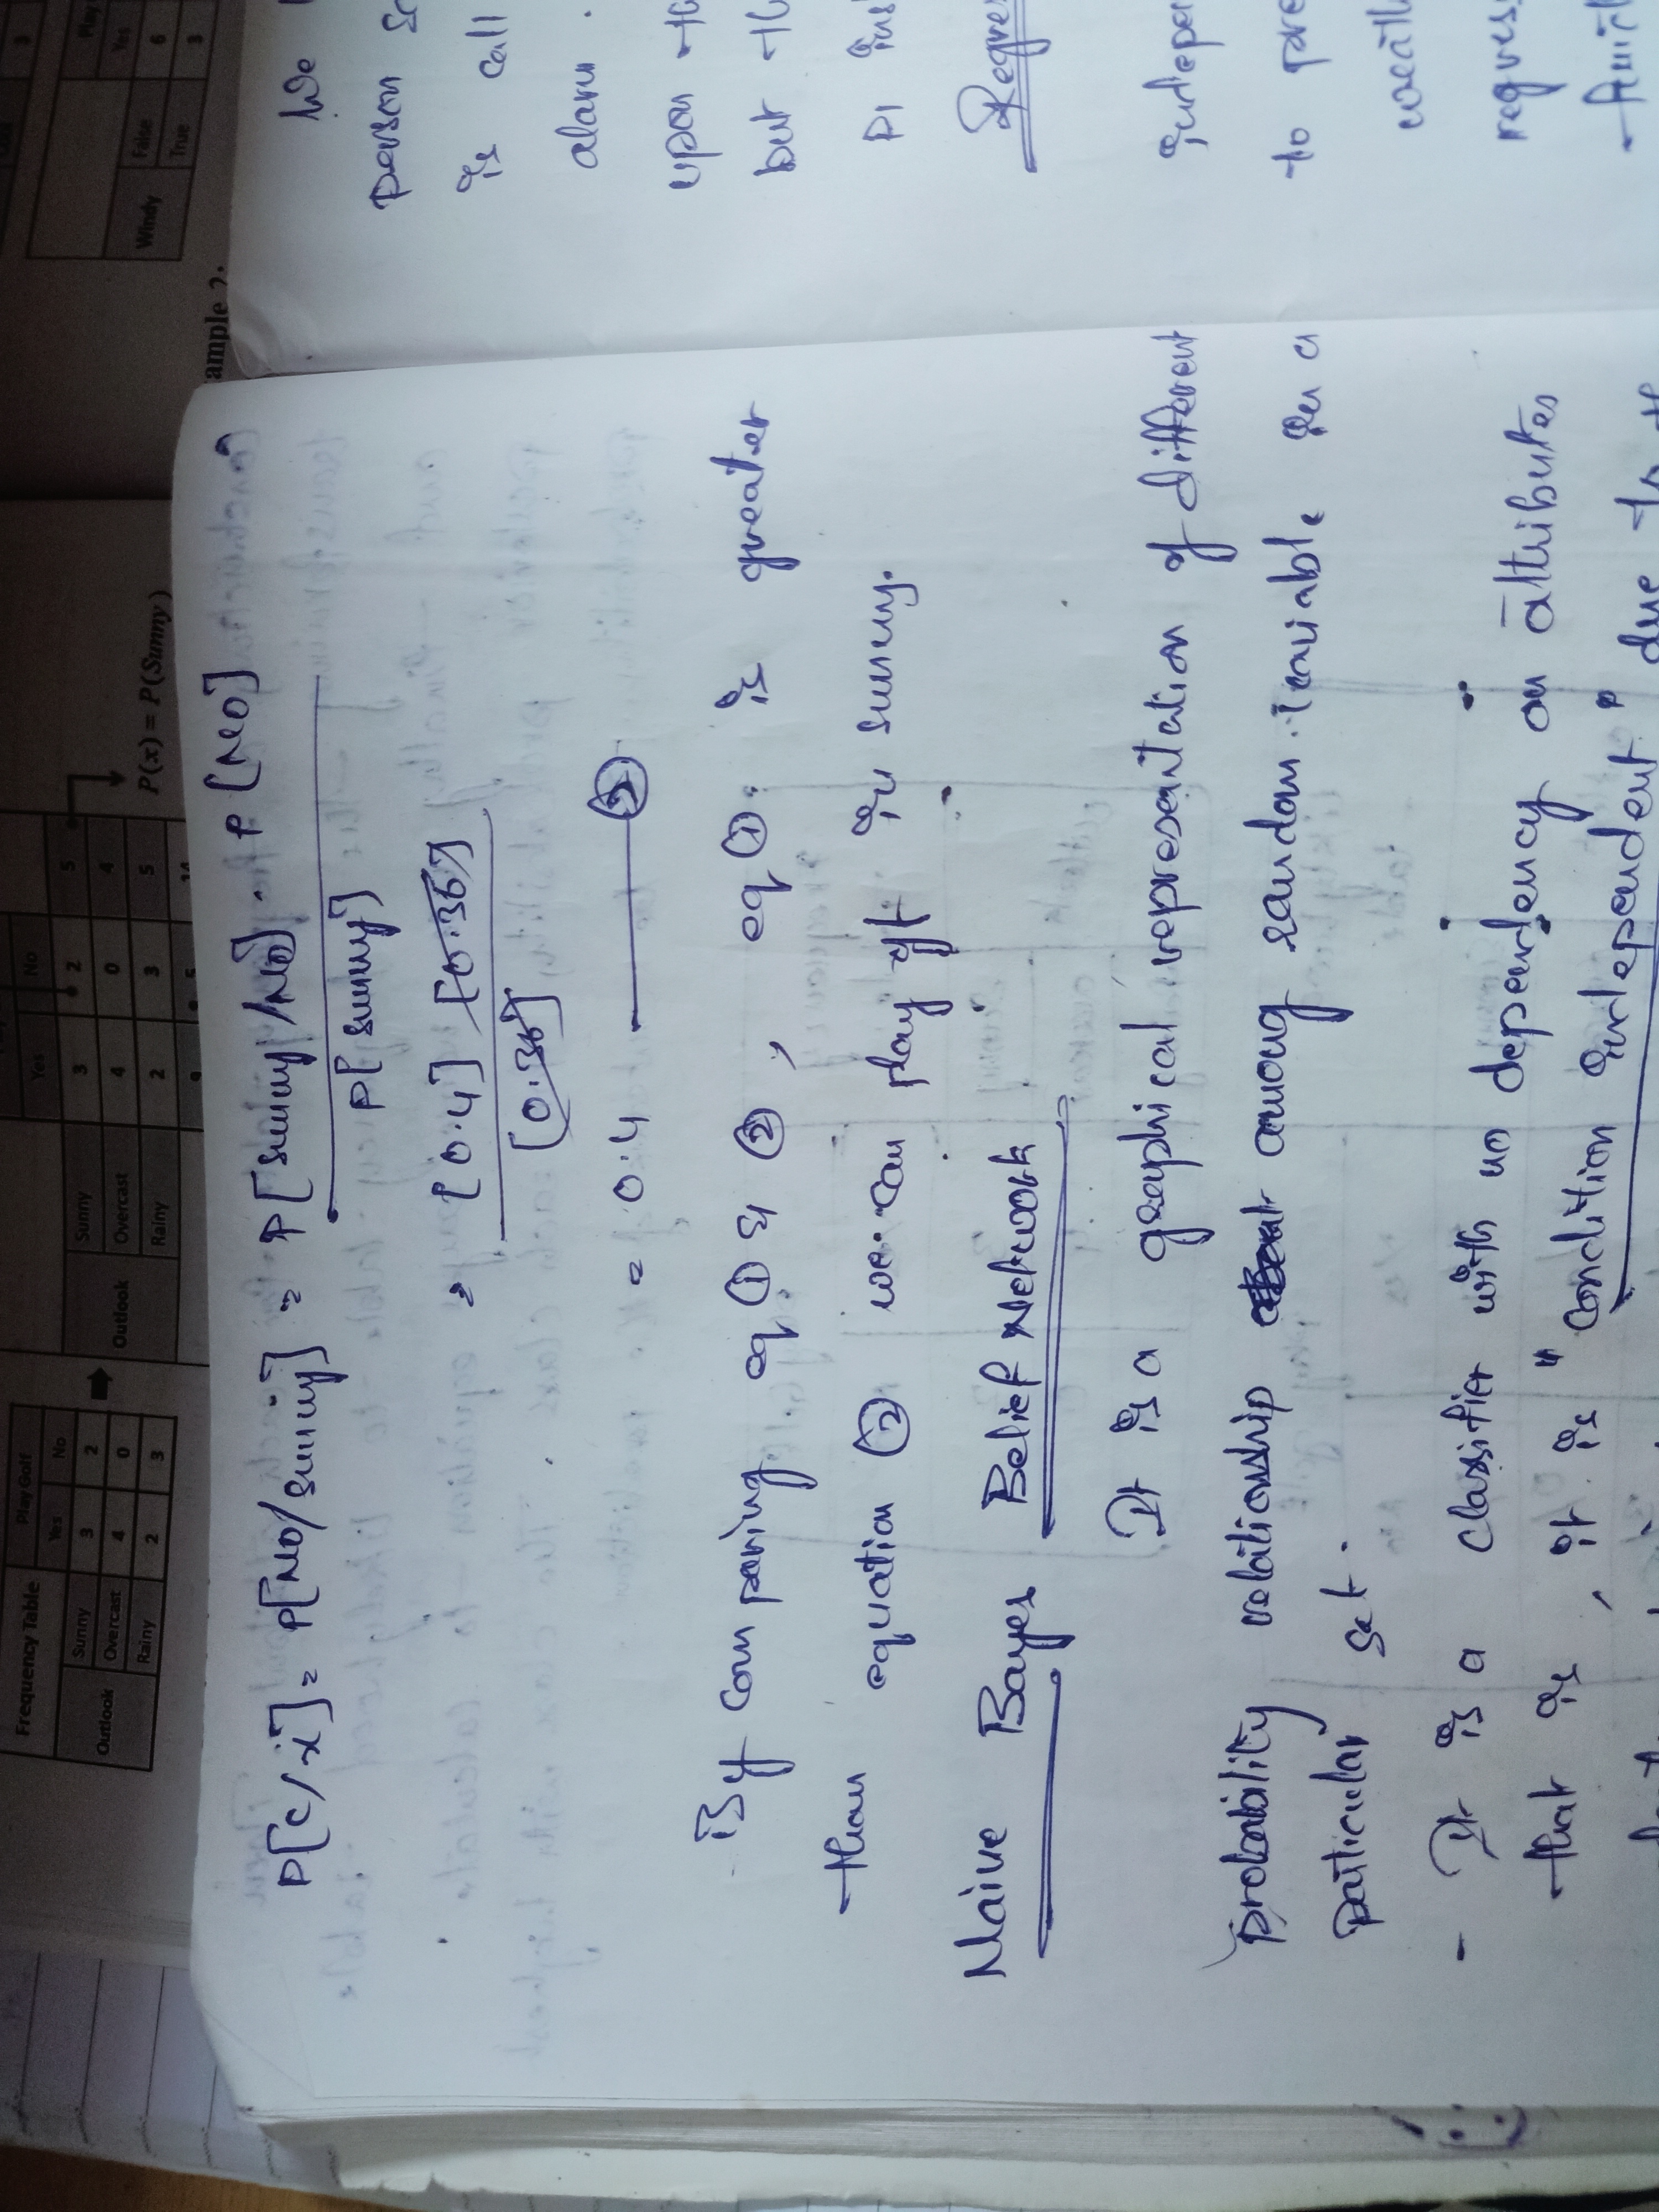 Frequency Table
Play Golf
Yes No
Outlook Sunny 3 2
Overcast 4 0
Rainy 2 3
Yes No
Outlook Sunny 3 2 5
Overcast 4 0 4
Rainy 2 3 5
9 5 14
P(x) = P(Sunny)
ample 2.
Play
Yes
Windy False 6
True 3
P[c/x] = P[No/sunny] = P[sunny/No] . P[No]
P[sunny]
= [0.4] [0.36]
[0.36]
= 0.4 ②
By comparing eq ① & ②, eq ① is greater
than equation ② we can play gf in sunny.
Naive Bayes Belief Network
It is a graphical representation of different
probability relationship among random variable in a
particular set.
- It is a classifier with no dependency on attributes
that is, it is "condition independent" due to
we
person
is call
alarm.
upon
but
P1
Regres
indepen
to pre
weath
regres